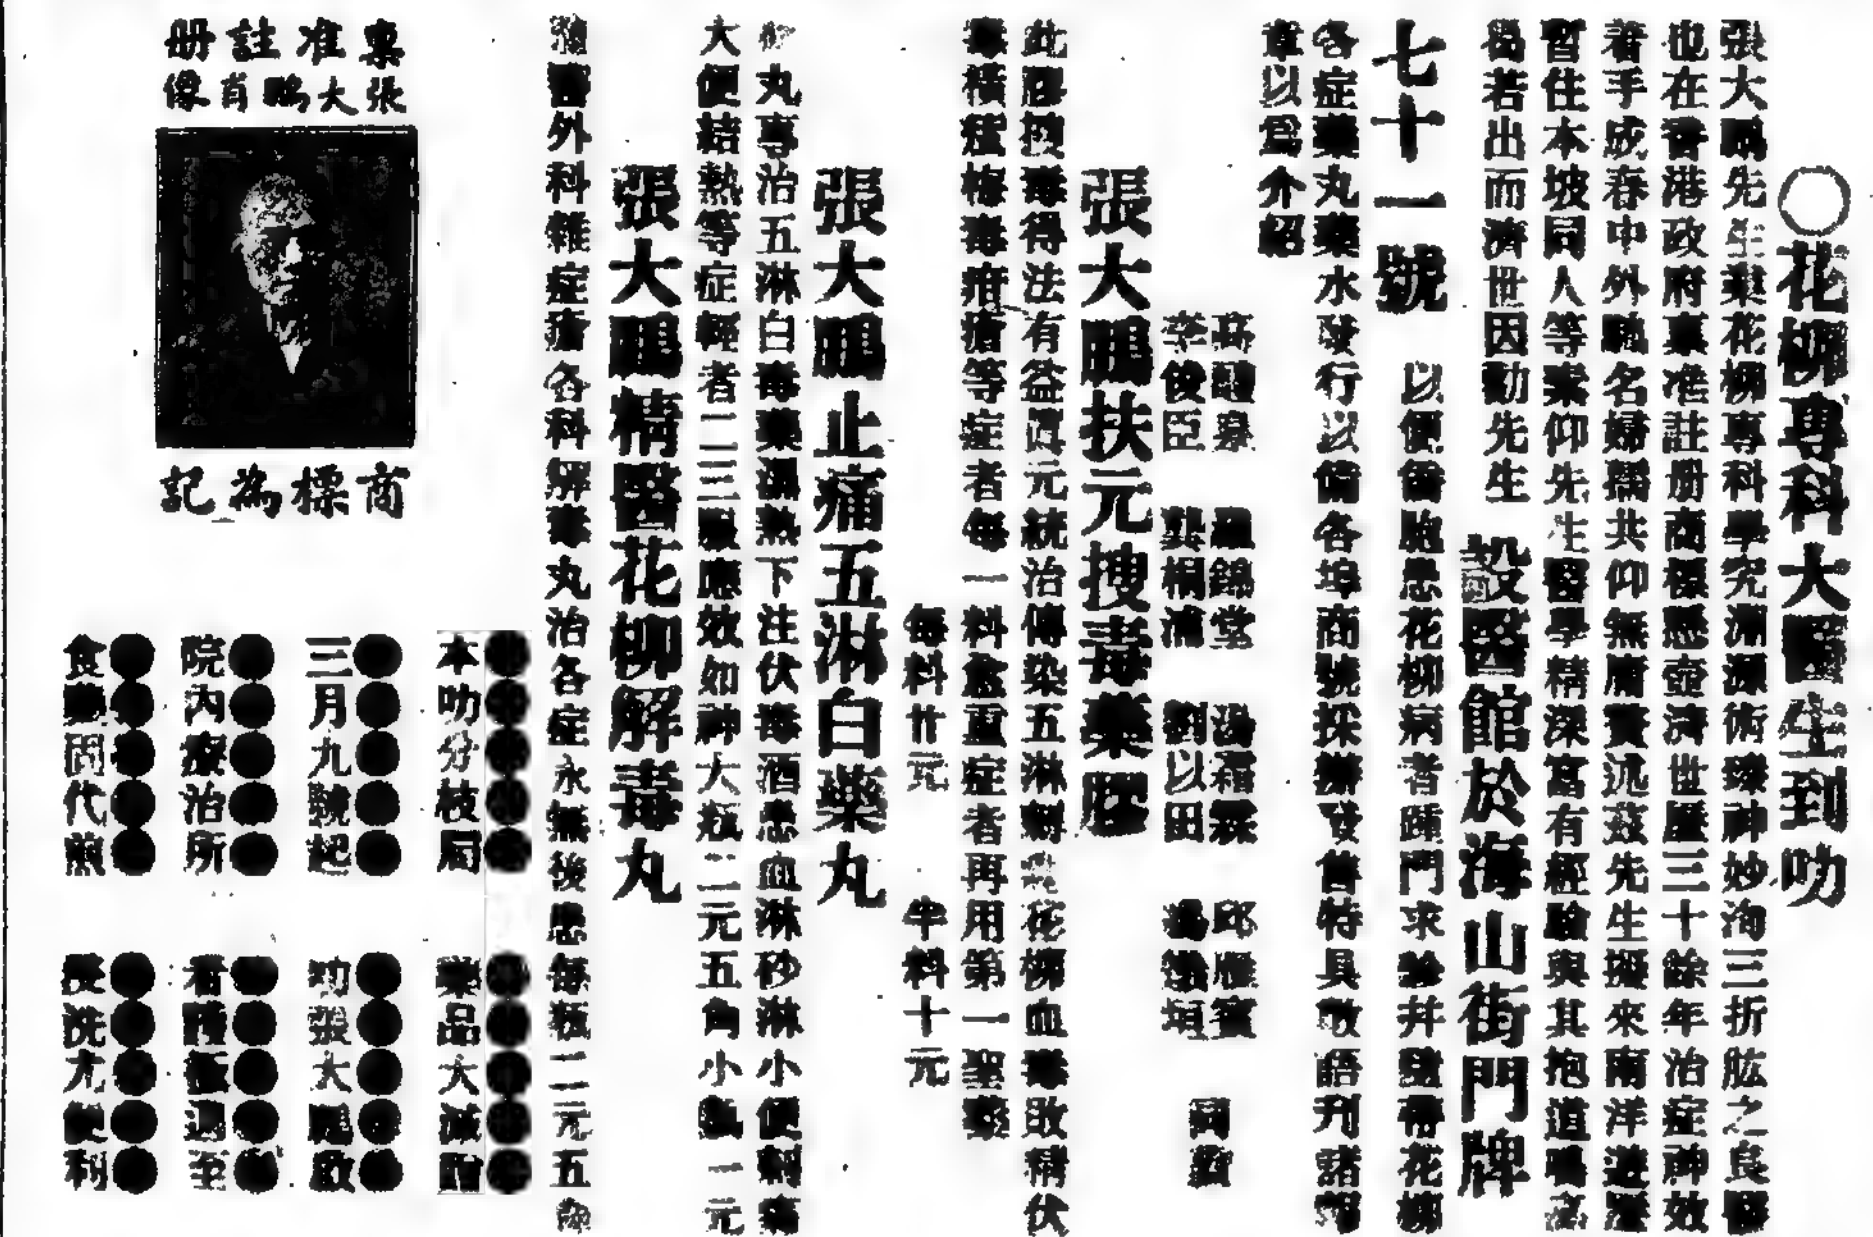 ○花柳專科大醫生到叻
張大鵬先生業花柳專科學究淵源術臻神妙洵三折肱之良醫
也在香港政府稟准註册商標懸壺濟世歷三十餘年治症神效
着手成春中外馳名婦孺共仰無庸贅述茲先生擬來南洋遊歷
暫住本坡同人等素仰先生醫學精深富有經驗與其抱道鳴高
曷若出而濟世因勸先生 設醫館於海山街門牌
七十一號 以便僑胞患花柳病者踵門求診并發售花柳
各症藥丸藥水發行以備各埠商號採辦發售特具數語刊諸報
章以爲介紹
高 羅錦堂 湯霖 邱雁賓
李俊臣 龔桐浦 劉以田 馮垣 同啟
張大鵬扶元搜毒藥膠
此膠搜毒得法有益眞元統治傳染五淋花柳血毒敗精伏
毒橫痃梅毒疳瘡等症者每一料愈重症者再用第一聖藥
每料廿元 半料十元
張大鵬止痛五淋白藥丸
此丸專治五淋白毒藥濕熱下注伏毒酒患血淋砂淋小便刺痛
大便結熱等症輕者二三服應效如神大瓶二元五角小瓶一元
張大鵬精醫花柳解毒丸
醫外科雜症瘡各科解毒丸治各症永無後患每瓶二元五角
本叻分枝局 藥品大減
三月九號起 叻張大鵬啟
院內療治所 看症極週至
食藥同代煎 浸洗尤便利
稟准註册
張大鵬肖像
商標為記